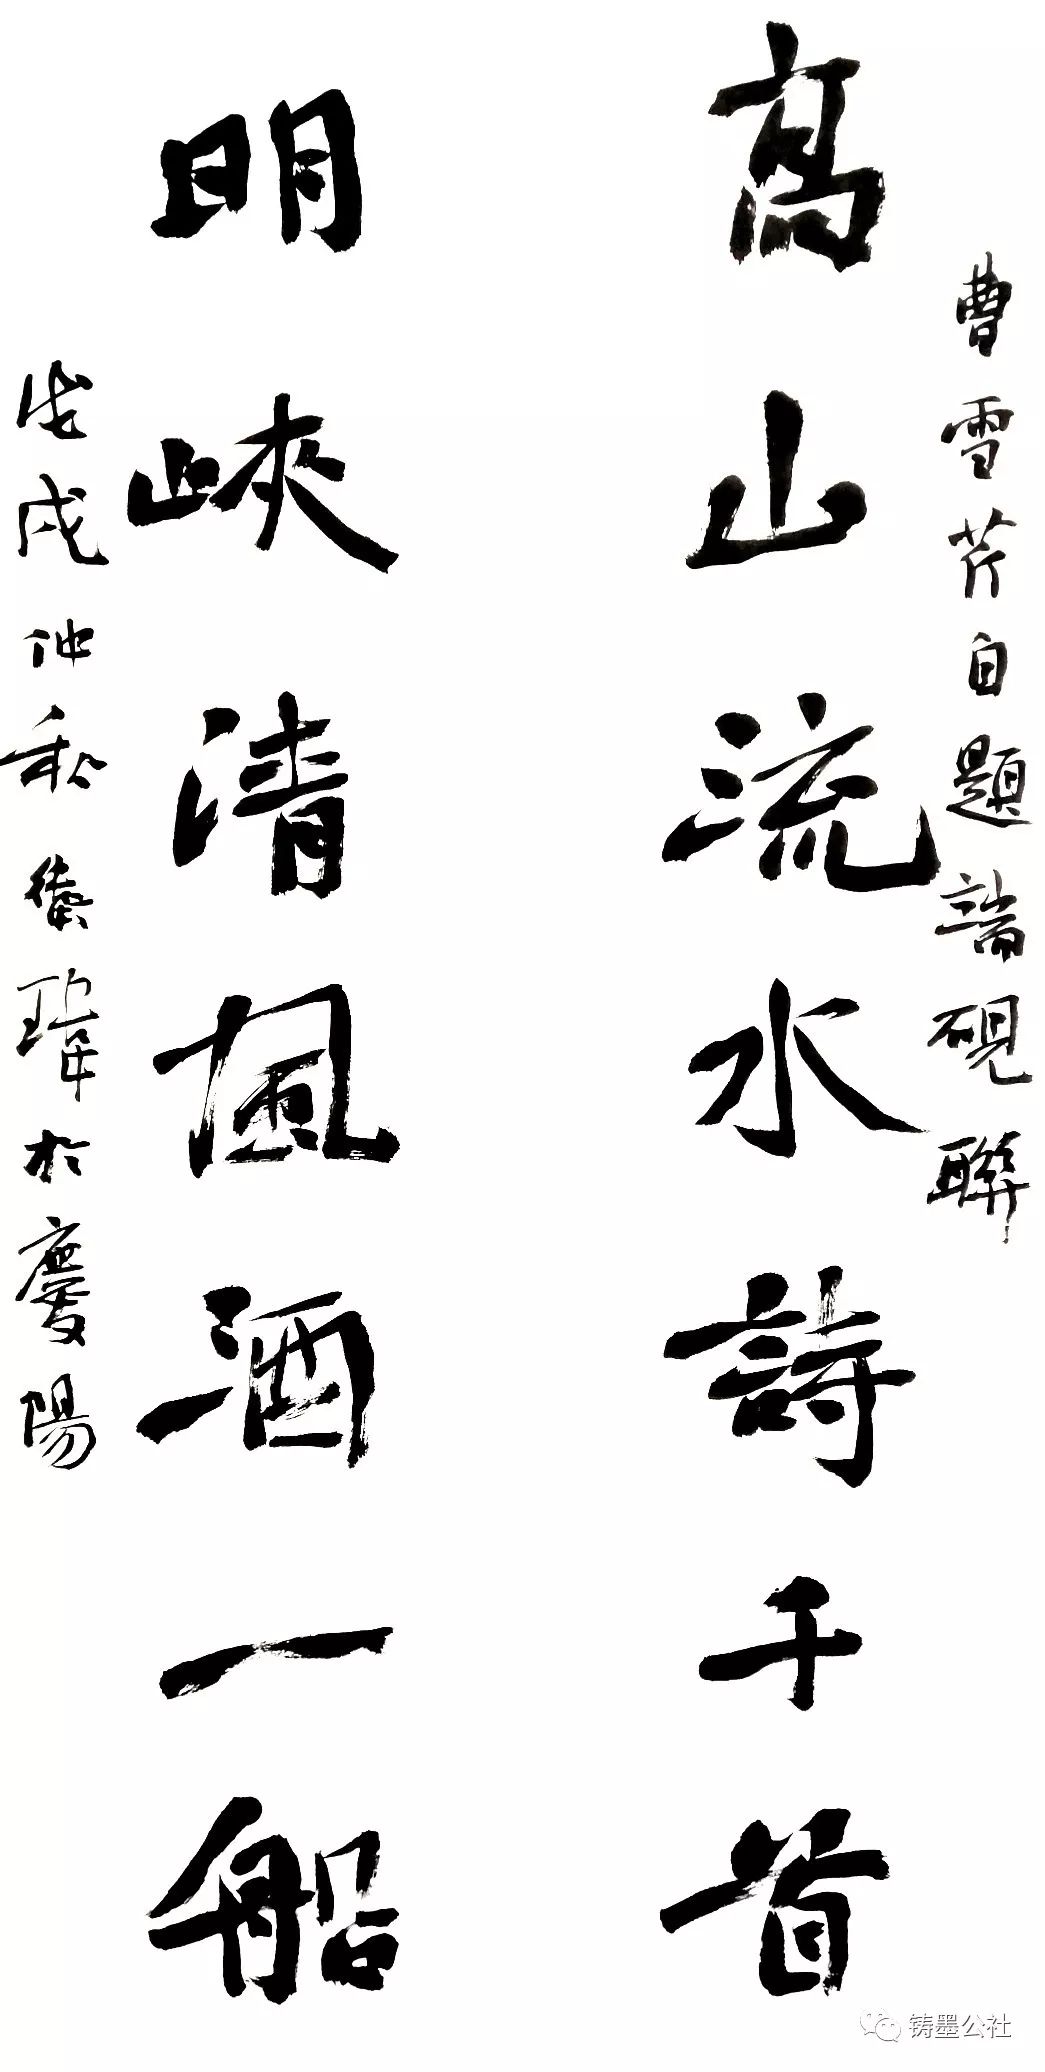 曹雪芹自題端硯聯
高山流水詩千首
明峽清風酒一船
戊戌仲秋衛瑋於慶陽
铸墨公社